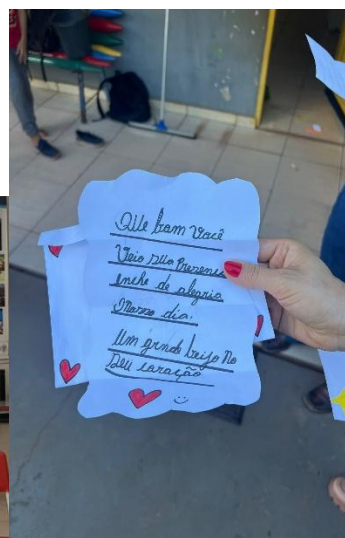 Que bom você
Veio sua presença
enche de alegria
nosso dia.
Um grnde beijo no
Seu coração